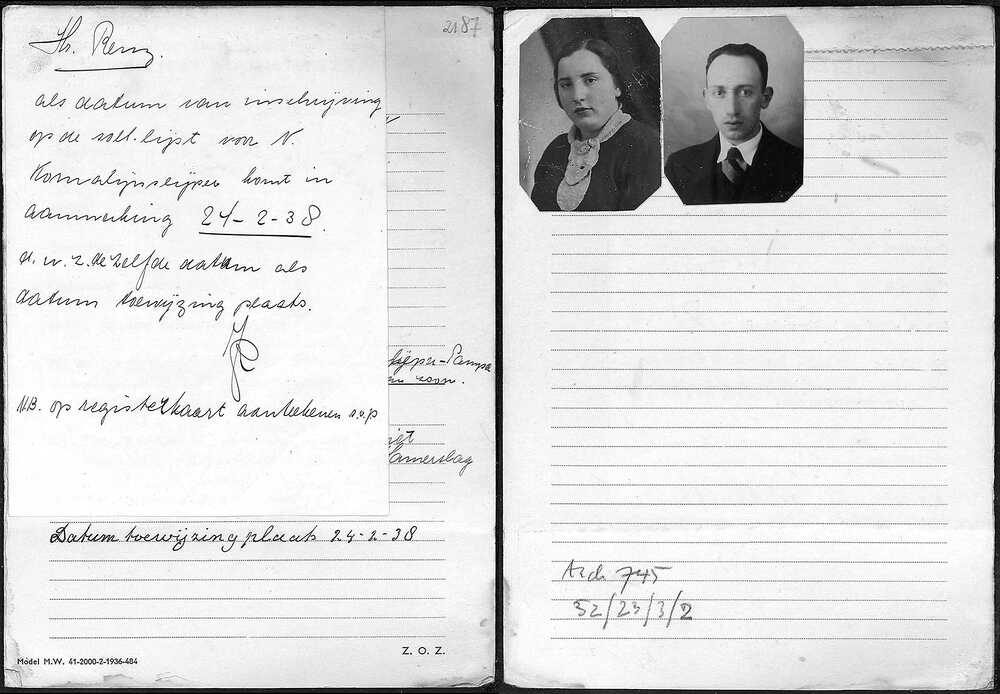 2187
Hr. Renz
als datum van inschrijving
op de soll. lijst voor N.
Komalijnslijper komt in
aanmerking 24-2-38.
d.w.z. dezelfde datum als
datum toewijzing plaats.
N.B. op registerkaart aantekenen s.v.p
Pampa
zoon.
Hamerslag
Datum toewijzing plaats 24-2-38
Model M.W. 41-2000-2-1936-484
Z. O. Z.
Arch 745
52/23/3/2